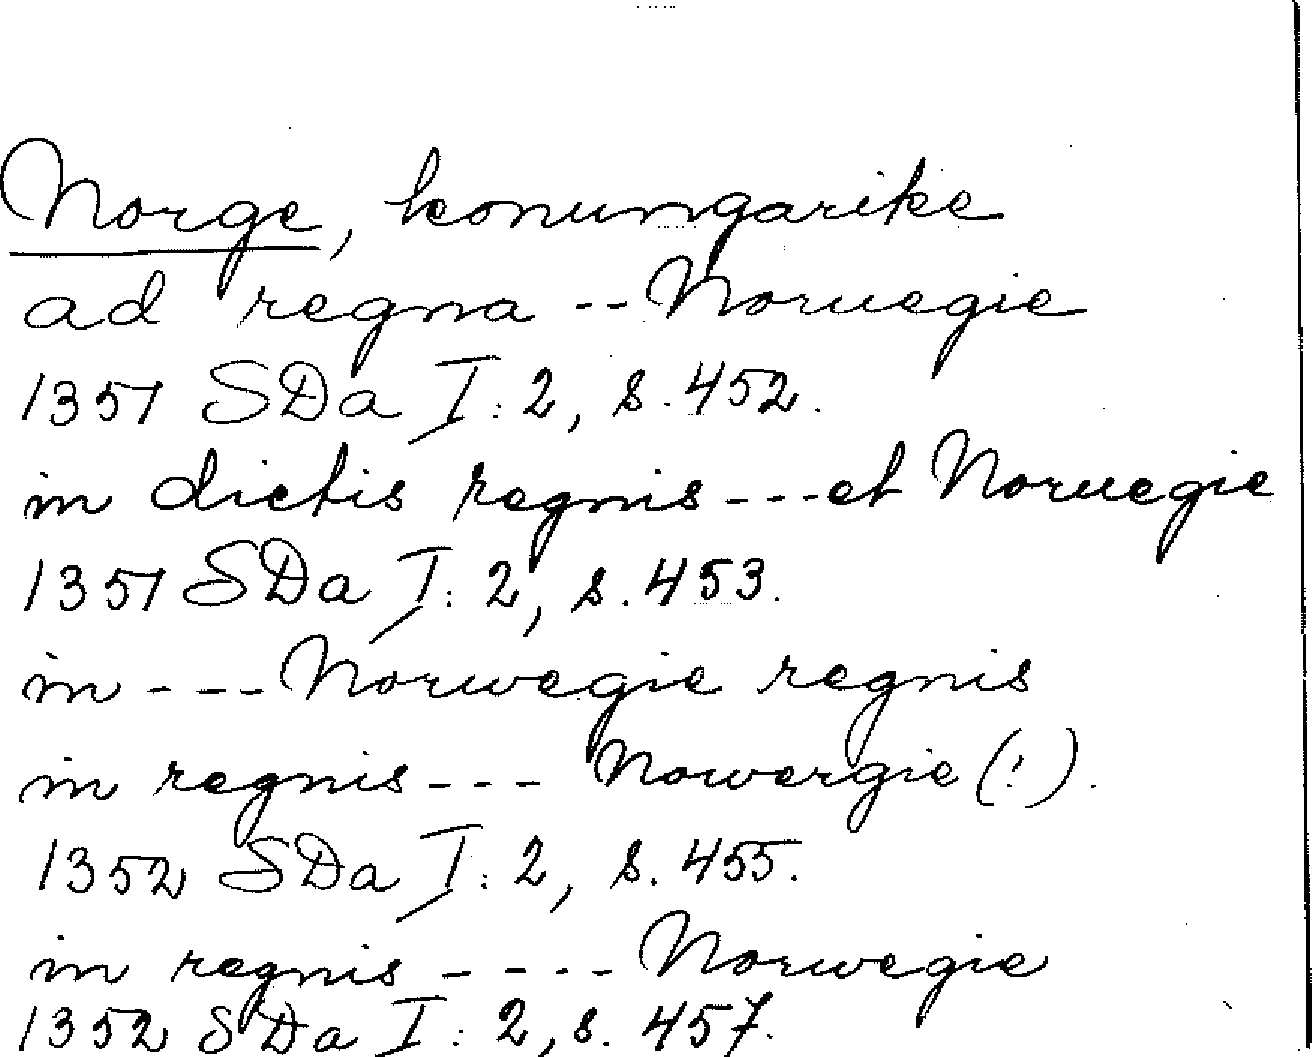 Norge, konungarike
ad regna -- Noruegie
1351 SDa I:2, s. 452.
in dictis regnis --- et Noruegie
1351 SDa I:2, s. 453.
in --- Norwegie regnis
in regnis --- Nowergie (!).
1352 SDa I:2, s. 455.
in regnis ---- Norwegie
1352 SDa I:2, s. 457.